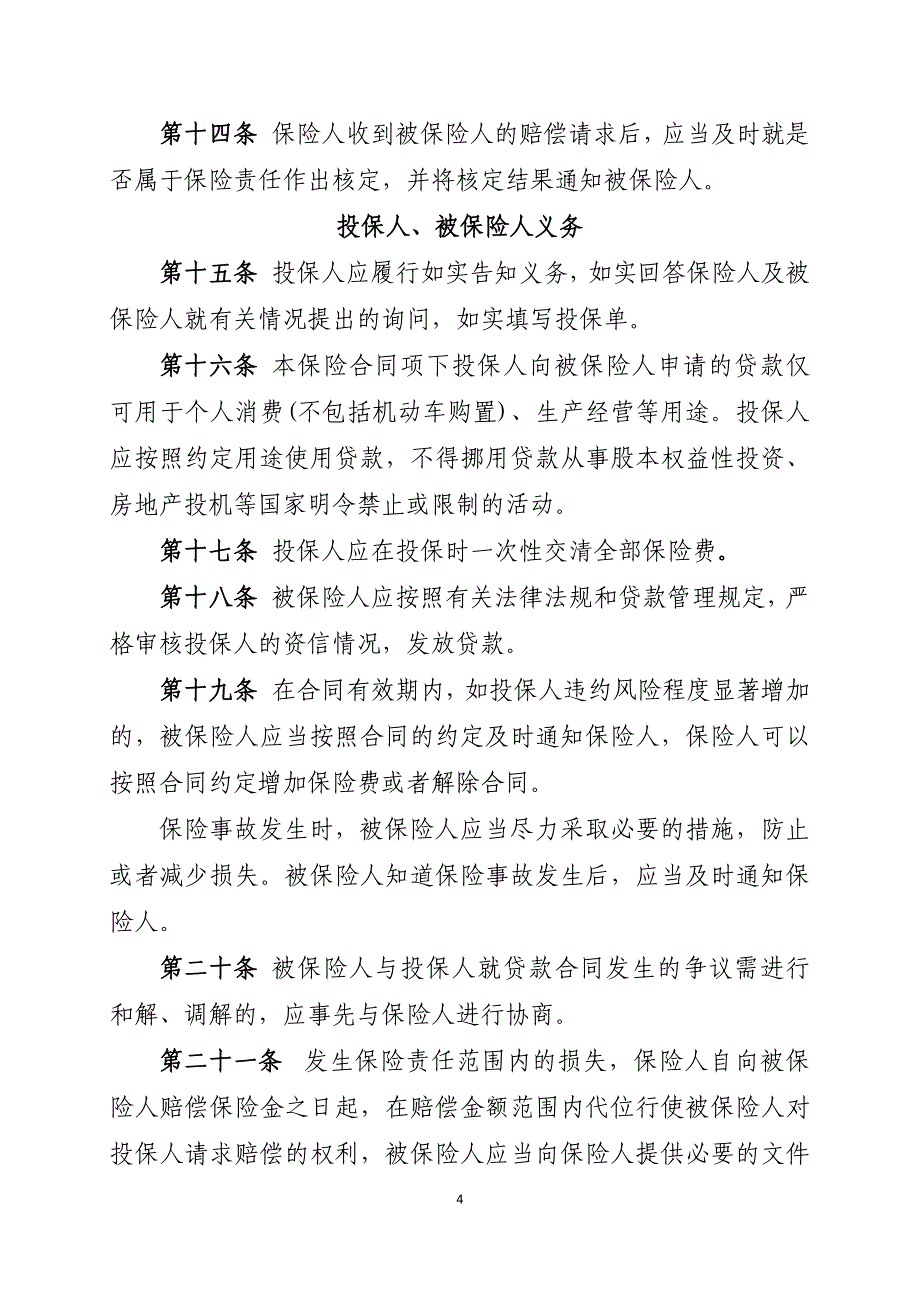 第十四条 保险人收到被保险人的赔偿请求后，应当及时就是
否属于保险责任作出核定，并将核定结果通知被保险人。
投保人、被保险人义务
第十五条 投保人应履行如实告知义务，如实回答保险人及被
保险人就有关情况提出的询问，如实填写投保单。
第十六条 本保险合同项下投保人向被保险人申请的贷款仅
可用于个人消费(不包括机动车购置)、生产经营等用途。投保人
应按照约定用途使用贷款，不得挪用贷款从事股本权益性投资、
房地产投机等国家明令禁止或限制的活动。
第十七条 投保人应在投保时一次性交清全部保险费。
第十八条 被保险人应按照有关法律法规和贷款管理规定，严
格审核投保人的资信情况，发放贷款。
第十九条 在合同有效期内，如投保人违约风险程度显著增加
的，被保险人应当按照合同的约定及时通知保险人，保险人可以
按照合同约定增加保险费或者解除合同。
保险事故发生时，被保险人应当尽力采取必要的措施，防止
或者减少损失。被保险人知道保险事故发生后，应当及时通知保
险人。
第二十条 被保险人与投保人就贷款合同发生的争议需进行
和解、调解的，应事先与保险人进行协商。
第二十一条 发生保险责任范围内的损失，保险人自向被保
险人赔偿保险金之日起，在赔偿金额范围内代位行使被保险人对
投保人请求赔偿的权利，被保险人应当向保险人提供必要的文件
4